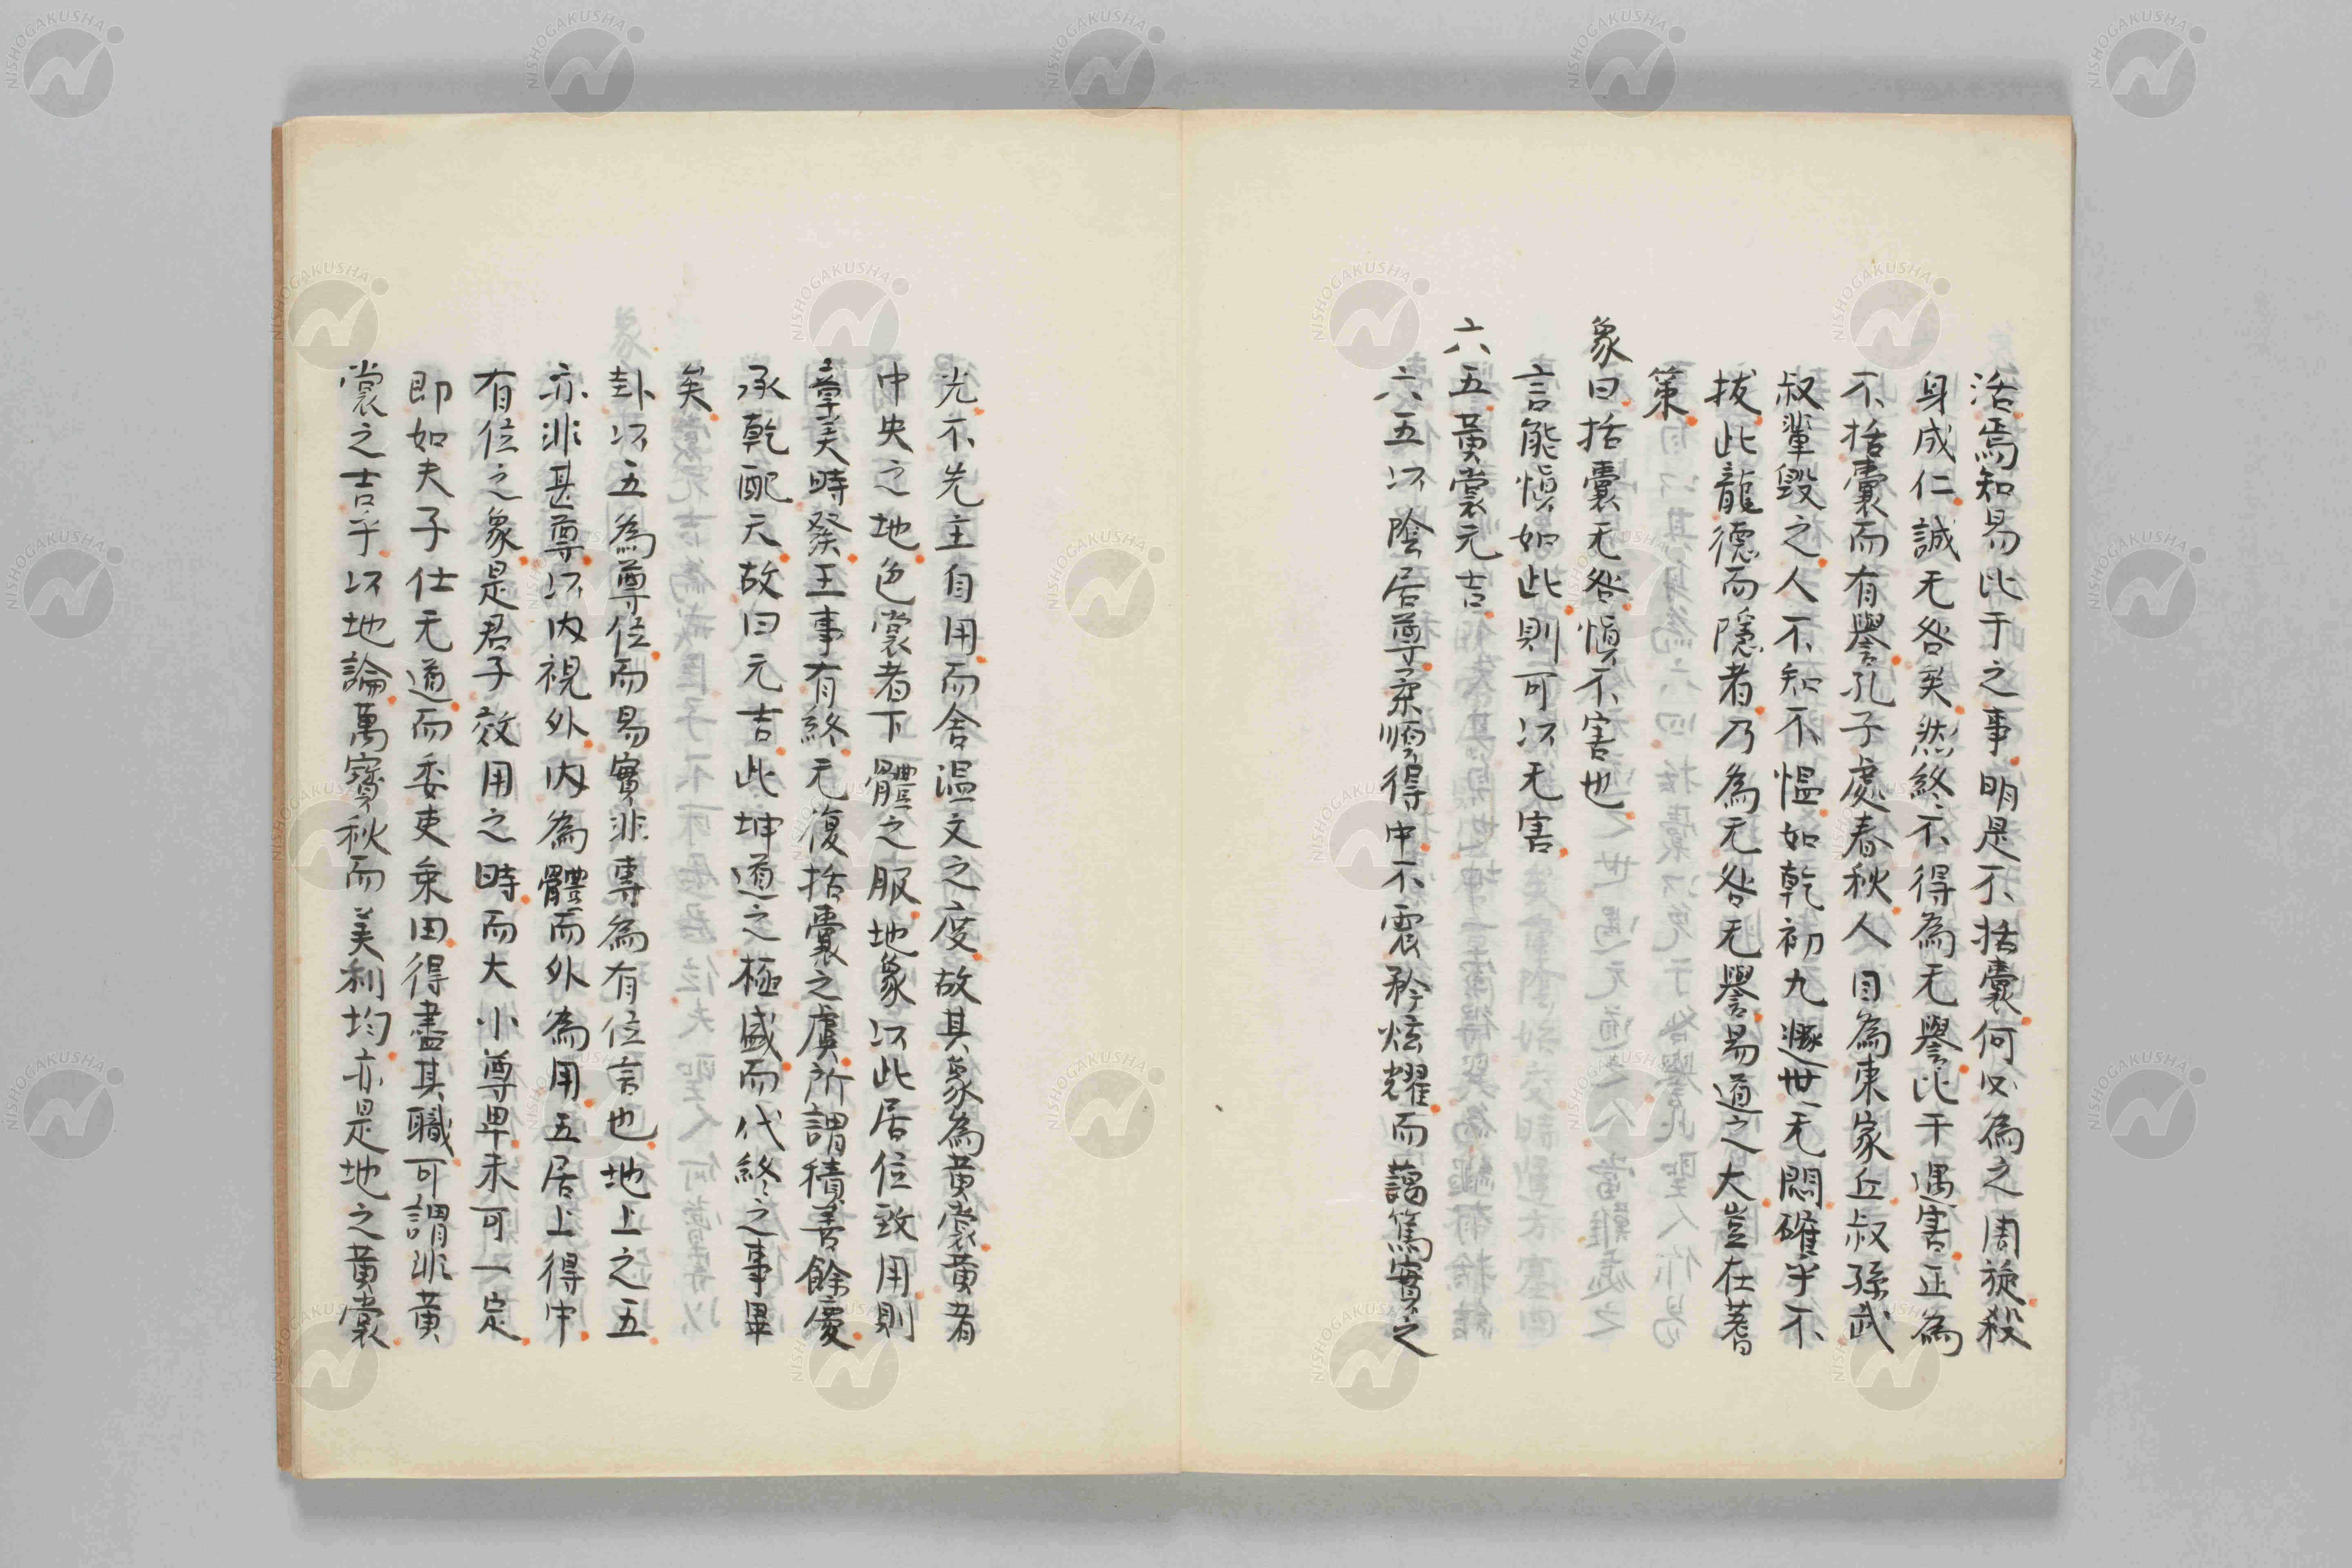 活焉知易比于之事明是不括囊何必為之周旋殺
身成仁誠无咎矣然終不得為无譽比干遇害正為
不括囊而有譽孔子處春秋人目為東家丘叔孫武
叔輩毀之人不知不慍如乾初九遯世无悶確乎不
拔此龍德而隱者乃為无咎无譽易道之大豈在蓍
策
象曰括囊无咎愼不害也
言能愼如此則可以无害
六五黃裳元吉
六五以陰居尊柔順得中不震矜炫耀而藹篤實之
光不先主自用而含温文之度故其象為黃裳黃者
中央之地色裳者下體之服地象以此居位致用則
章美時發王事有終无復括囊之虞所謂積善餘慶
承乾配天故曰元吉此坤道之極盛而代終之事畢
矣
卦以五為尊位而易實非專為有位言也地上之五
亦非甚尊以内視外内為體而外為用五居上得中
有位之象是君子效用之時而大小尊卑未可一定
即如夫子仕无道而委吏乘田得盡其職可謂非黃
裳之吉乎以地論萬寶秋而美利均亦是地之黃裳
NISHOGAKUSHA